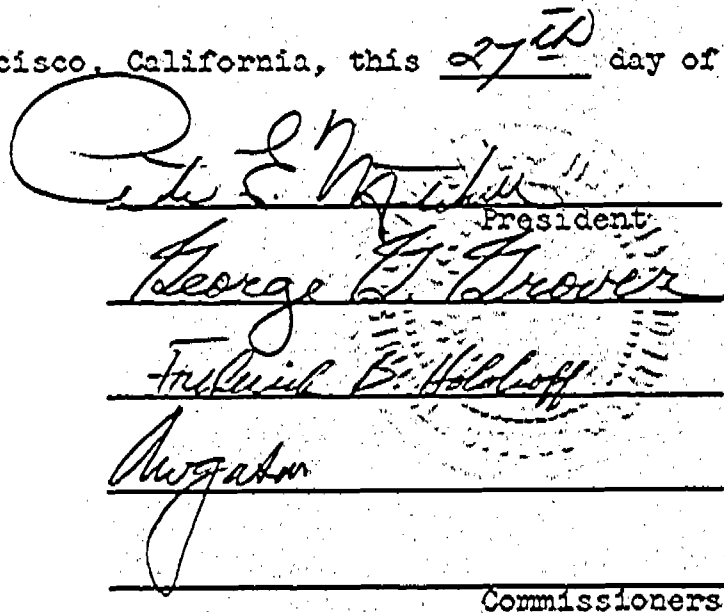 cisco, California, this 27th day of
E. Mitchell
President
George G. Grover
Frederick B. Holoboff
Commissioners